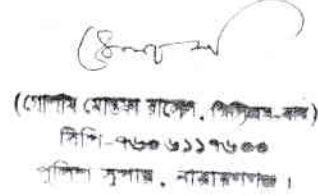 (গোলাম মোস্তফা রাসেল, পিপিএম-বার)
বিপি-৭৬০৬১১১৬৩৩
পুলিশ সুপার, নারায়ণগঞ্জ।